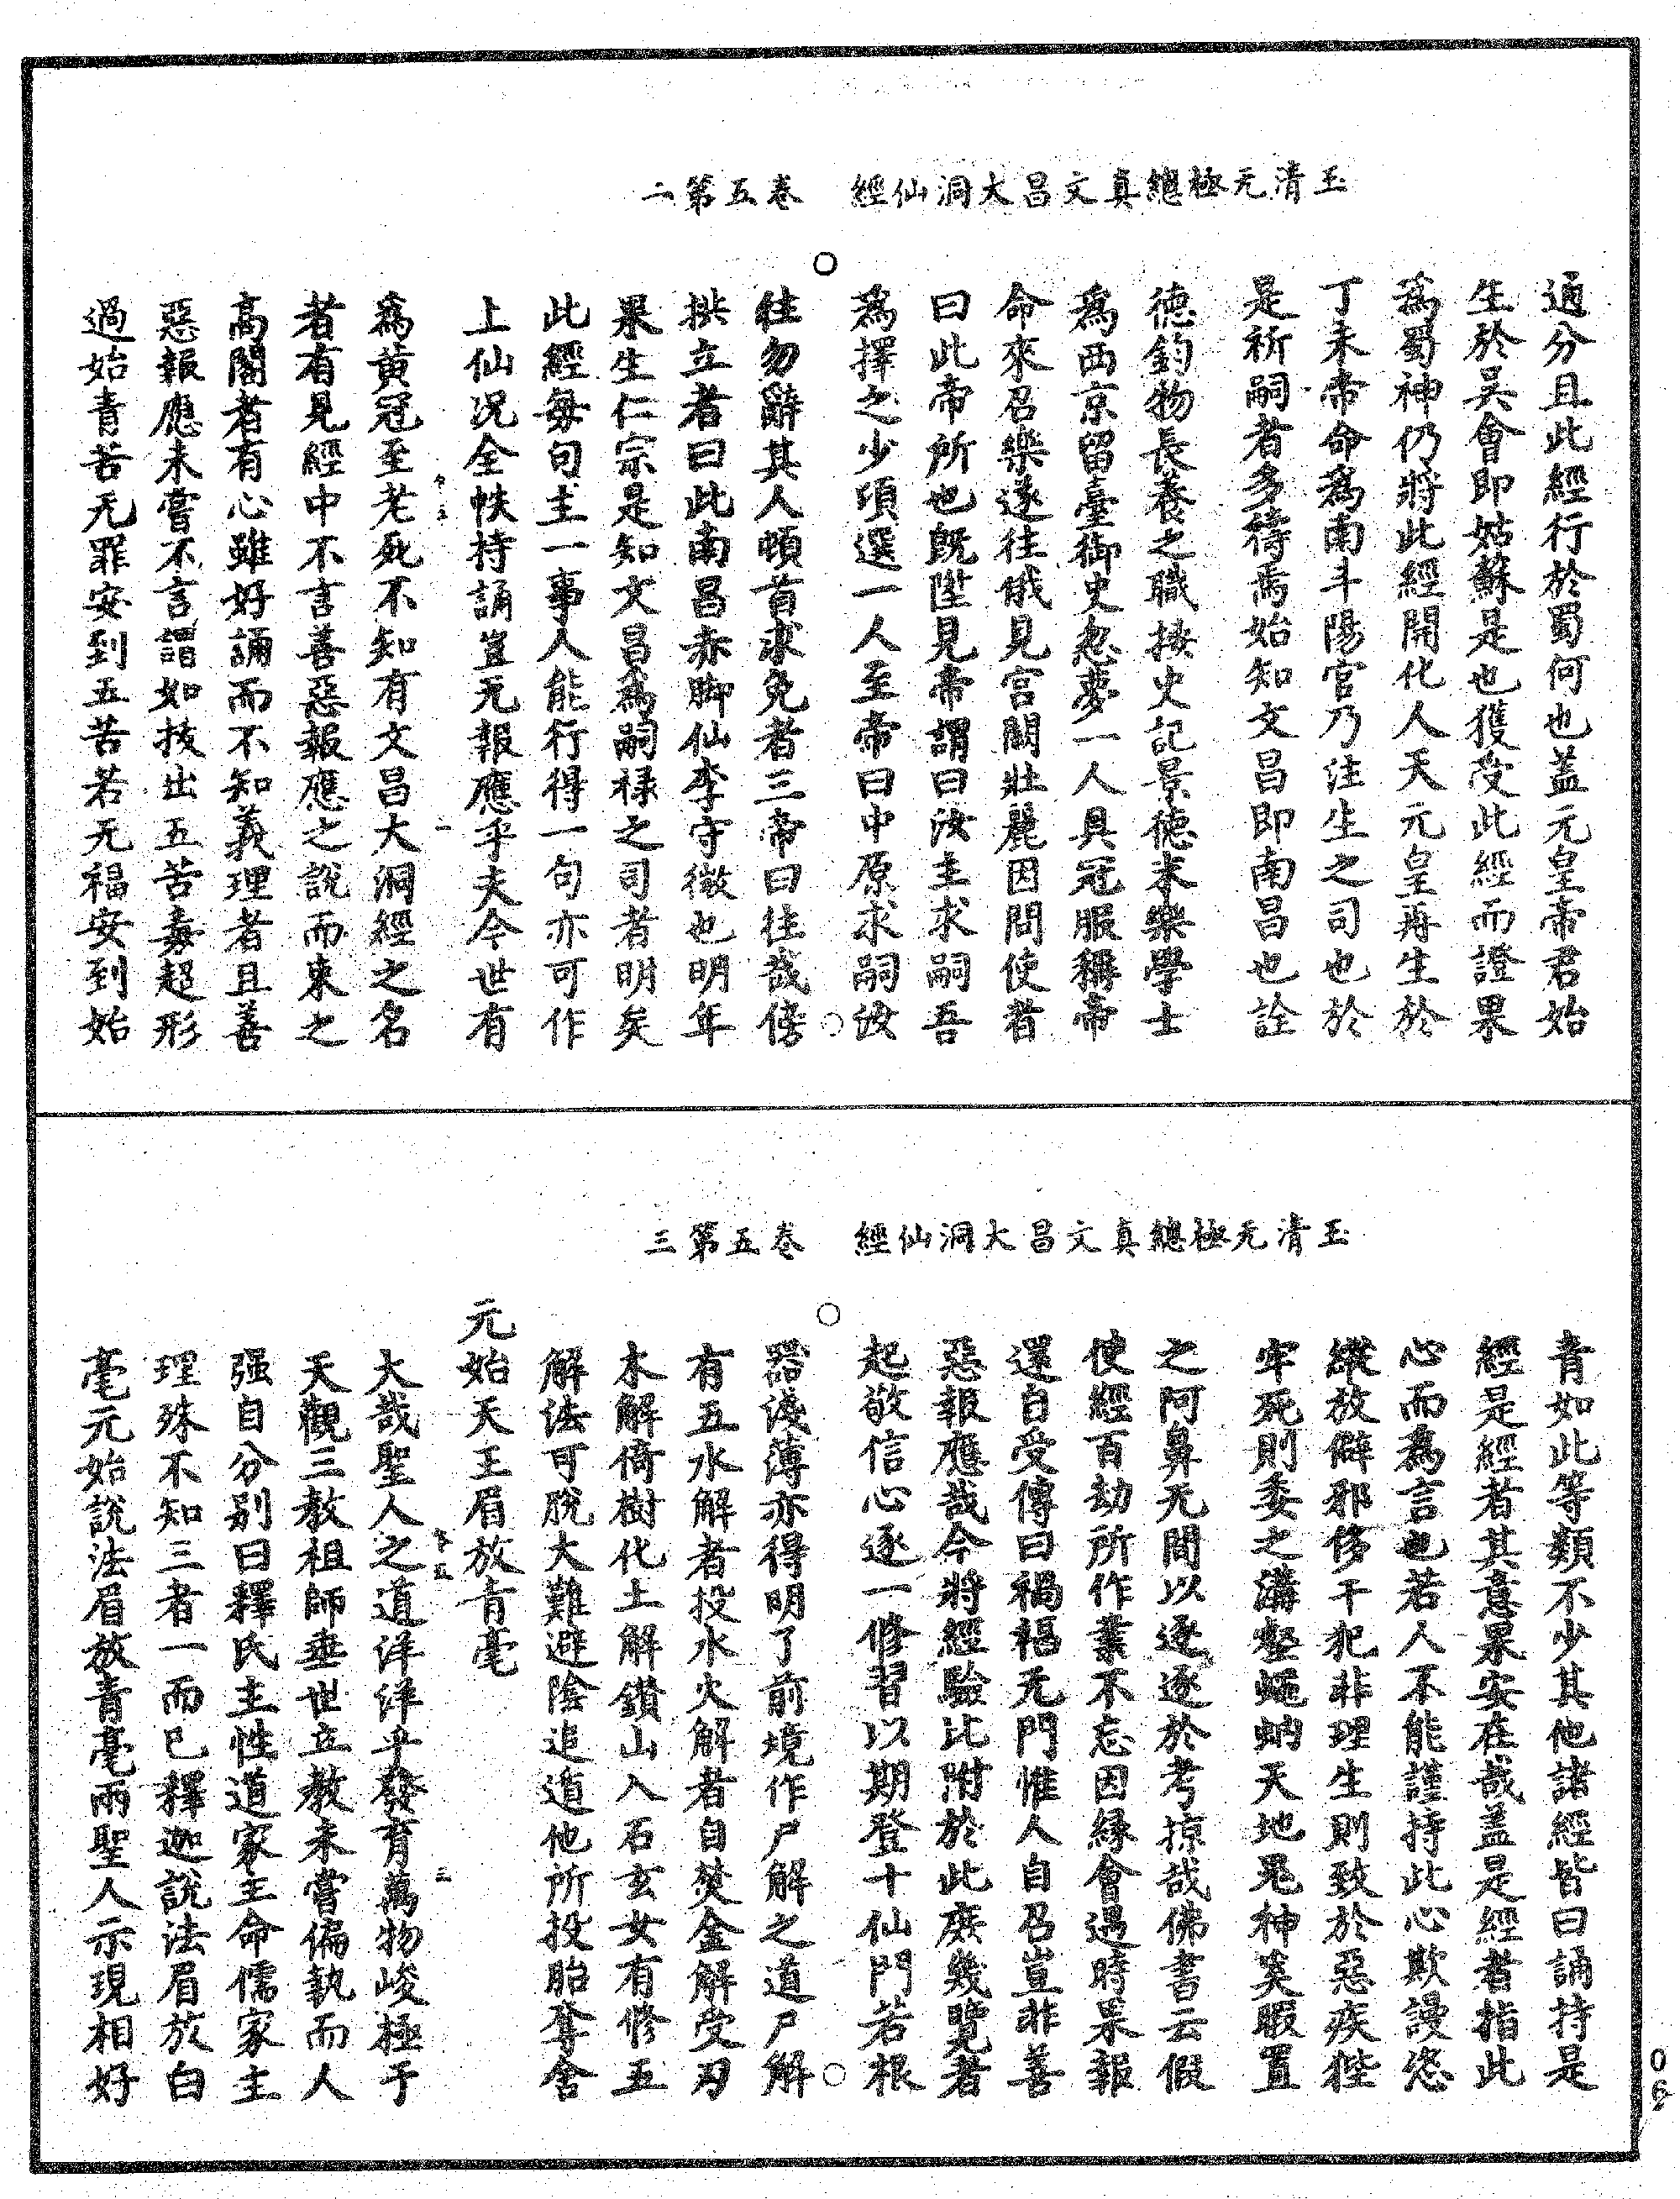 玉清无極總真文昌大洞仙經　卷五第二
適分且此經行於蜀何也蓋元皇帝君始
生於吳會即姑蘇是也獲受此經而證果
為蜀神仍將此經開化人天元皇再生於
丁未帝命為南斗陽官乃注生之司也於
是祈嗣者多禱焉始知文昌即南昌也詮
德鈞物長養之職按史記景德末樂學士
為西京留臺御史忽夢一人具冠服稱帝
命來召樂遂往俄見宮闕壯麗因問使者
曰此帝所也既陞見帝謂曰汝主求嗣吾
為擇之少頃選一人至帝曰中原求嗣汝
往勿辭其人頓首求免者三帝曰往哉傍
拱立者曰此南昌赤脚仙李守微也明年
果生仁宗是知文昌為嗣祿之司者明矣
此經每句主一事人能行得一句亦可作
上仙况全帙持誦豈无報應乎夫今世有
為黄冠至老死不知有文昌大洞經之名
者有見經中不言善惡報應之說而束之
高閣者有心雖好誦而不知義理者且善
惡報應未嘗不言謂如技出五苦毒超形
過始青苦无罪安到五苦若无福安到始
玉清无極總真文昌大洞仙經　卷五第三
青如此等類不少其他諸經皆曰誦持是
經是經者其意果安在哉蓋是經者指此
心而為言也若人不能謹持此心欺謾恣
縱放僻邪侈干犯非理生則致於惡疾狴
牢死則委之溝壑蠅蚋天地鬼神笑服置
之阿鼻无間以逐逐於考掠哉佛書云假
使經百劫所作業不忘因緣會遇時果報
還自受傳曰禍福无門惟人自召豈非善
惡報應哉今將經驗比附於此庶幾覽者
起敬信心逐一修習以期登十仙門若根
器淺薄亦得明了前境作尸解之道尸解
有五水解者投水火解者自焚金解受刃
木解倚樹化土解鑽山入石玄女有修五
解法可脫大難避陰追逭他所投胎奪舍
元始天王眉放青毫
大哉聖人之道洋洋乎發育萬物峻極于
天觀三教祖師垂世立教未嘗偏執而人
强自分別曰釋氏主性道家主命儒家主
理殊不知三者一而已釋迦說法眉放白
毫元始說法眉放青毫兩聖人示現相好